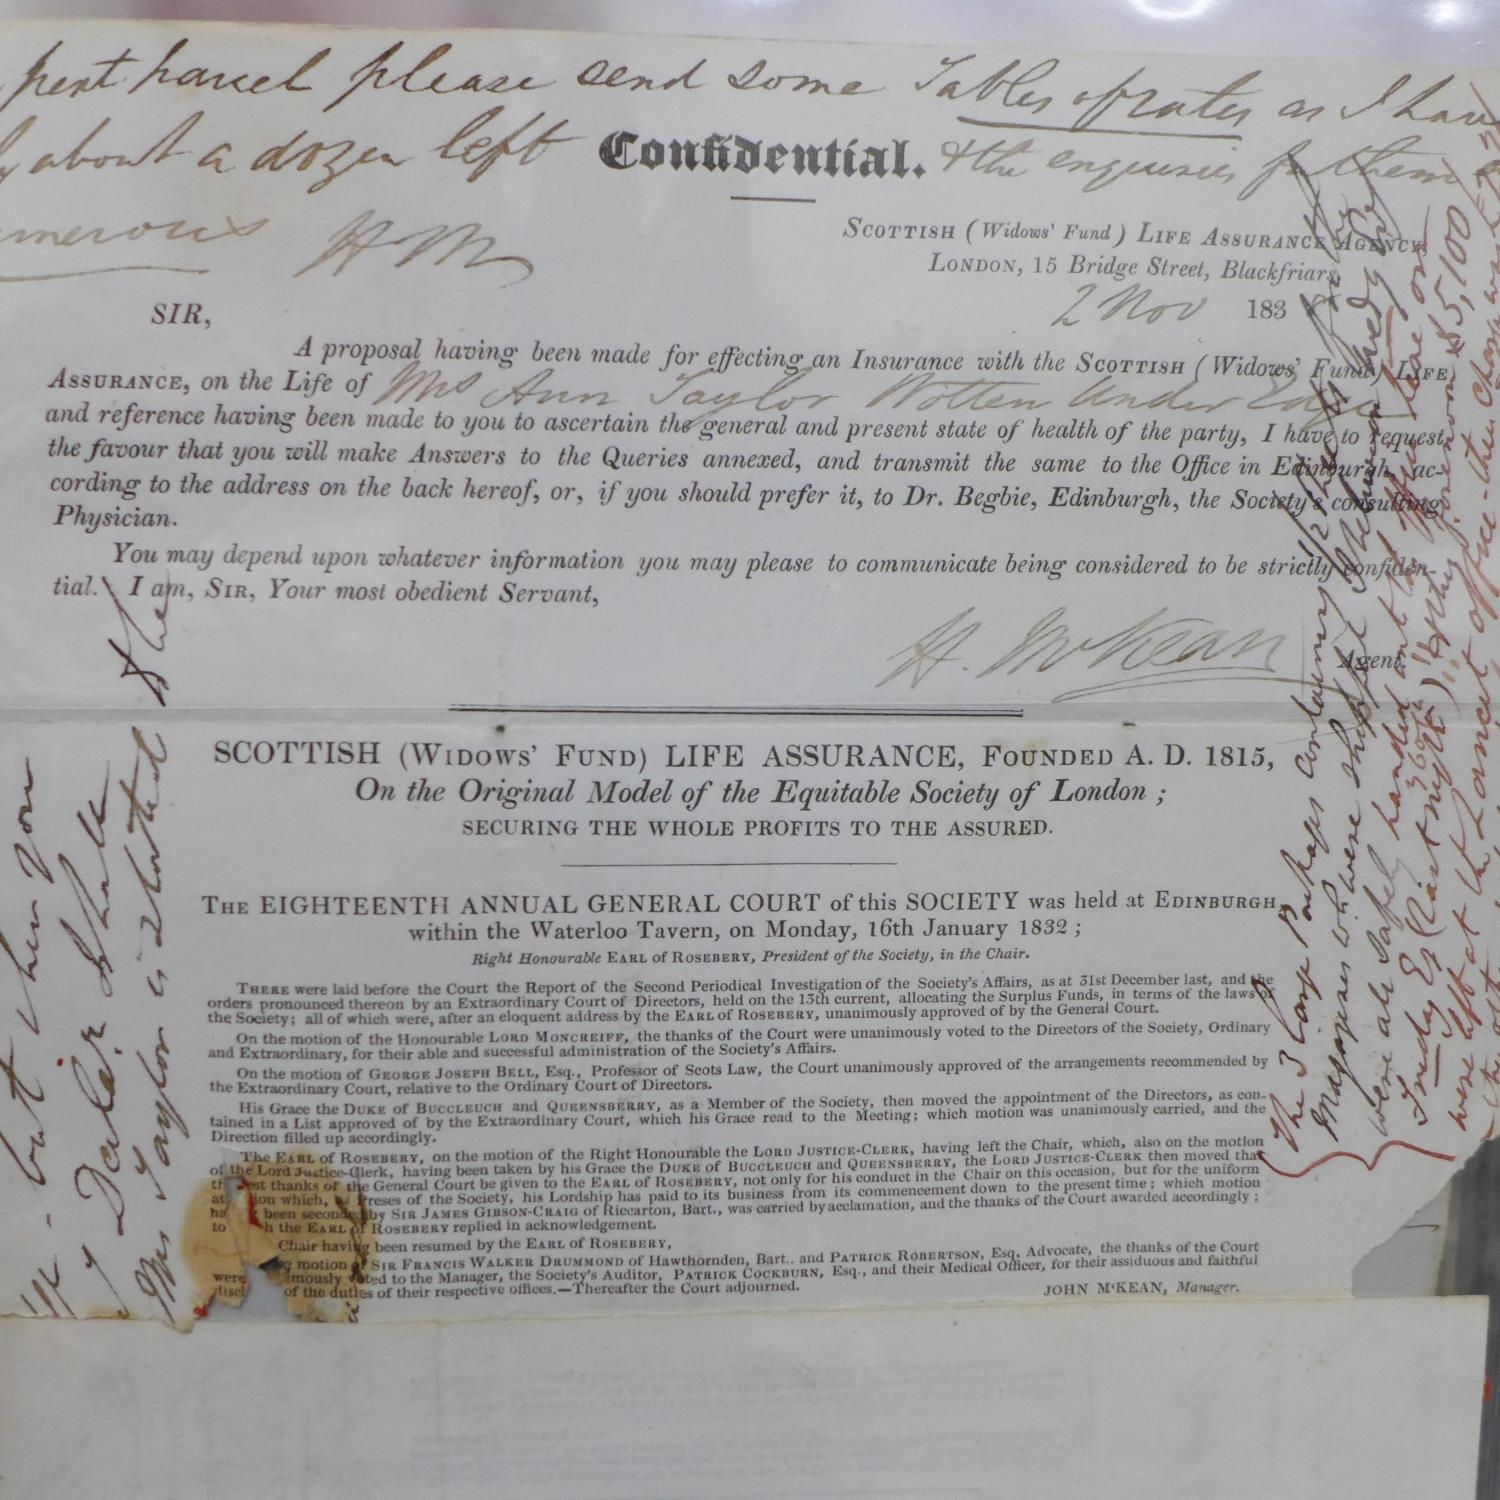 pent parcel please send some Tables of rates as I have
about a dozen left Confidential. & the enquiries for them
merous H M
SCOTTISH (Widows' Fund) LIFE ASSURANCE AGENCY,
LONDON, 15 Bridge Street, Blackfriars,
2 Nov 183
SIR,
A proposal having been made for effecting an Insurance with the SCOTTISH (Widows' Fund) LIFE
ASSURANCE, on the Life of Mrs Ann Taylor Wotten Under Edge
and reference having been made to you to ascertain the general and present state of health of the party, I have to request
the favour that you will make Answers to the Queries annexed, and transmit the same to the Office in Edinburgh, ac-
cording to the address on the back hereof, or, if you should prefer it, to Dr. Begbie, Edinburgh, the Society's consulting
Physician.
You may depend upon whatever information you may please to communicate being considered to be strictly confiden-
tial. I am, SIR, Your most obedient Servant,
H. McKean
Agent.
SCOTTISH (WIDOWS' FUND) LIFE ASSURANCE, FOUNDED A. D. 1815,
On the Original Model of the Equitable Society of London;
SECURING THE WHOLE PROFITS TO THE ASSURED.
THE EIGHTEENTH ANNUAL GENERAL COURT of this SOCIETY was held at EDINBURGH,
within the Waterloo Tavern, on Monday, 16th January 1832;
Right Honourable EARL OF ROSEBERY, President of the Society, in the Chair.
THERE were laid before the Court the Report of the Second Periodical Investigation of the Society's Affairs, as at 31st December last, and the
orders pronounced thereon by an Extraordinary Court of Directors, held on the 13th current, allocating the Surplus Funds, in terms of the laws of
the Society; all of which were, after an eloquent address by the EARL OF ROSEBERY, unanimously approved of by the General Court.
On the motion of the Honourable LORD MONCREIFF, the thanks of the Court were unanimously voted to the Directors of the Society, Ordinary
and Extraordinary, for their able and successful administration of the Society's Affairs.
On the motion of GEORGE JOSEPH BELL, Esq., Professor of Scots Law, the Court unanimously approved of the arrangements recommended by
the Extraordinary Court, relative to the Ordinary Court of Directors.
His Grace the DUKE OF BUCCLEUCH and QUEENSBERRY, as a Member of the Society, then moved the appointment of the Directors, as con-
tained in a List approved of by the Extraordinary Court, which his Grace read to the Meeting; which motion was unanimously carried, and the
Direction filled up accordingly.
The EARL OF ROSEBERY, on the motion of the Right Honourable the LORD JUSTICE-CLERK, having left the Chair, which, also on the motion
of the Lord Justice-Clerk, having been taken by his Grace the DUKE OF BUCCLEUCH and QUEENSBERRY, the LORD JUSTICE-CLERK then moved that
th est thanks of the General Court be given to the EARL OF ROSEBERY, not only for his conduct in the Chair on this occasion, but for the uniform
at ion which, Preses of the Society, his Lordship has paid to its business from its commencement down to the present time; which motion
ha been seconded by SIR JAMES GIBSON-CRAIG of Riccarton, Bart., was carried by acclamation, and the thanks of the Court awarded accordingly;
to h the EARL OF ROSEBERY replied in acknowledgement.
Chair having been resumed by the EARL OF ROSEBERY,
motion of SIR FRANCIS WALKER DRUMMOND of Hawthornden, Bart., and PATRICK ROBERTSON, Esq. Advocate, the thanks of the Court
were imously voted to the Manager, the Society's Auditor, PATRICK COCKBURN, Esq., and their Medical Officer, for their assiduous and faithful
discl of the duties of their respective offices.—Thereafter the Court adjourned.
JOHN M'KEAN, Manager.
but when you
shall
Mrs Taylor is the
The 3 large Packages containing
Magazines wh were shipped
were all safely handed out
were left at the Lancet office - their charge